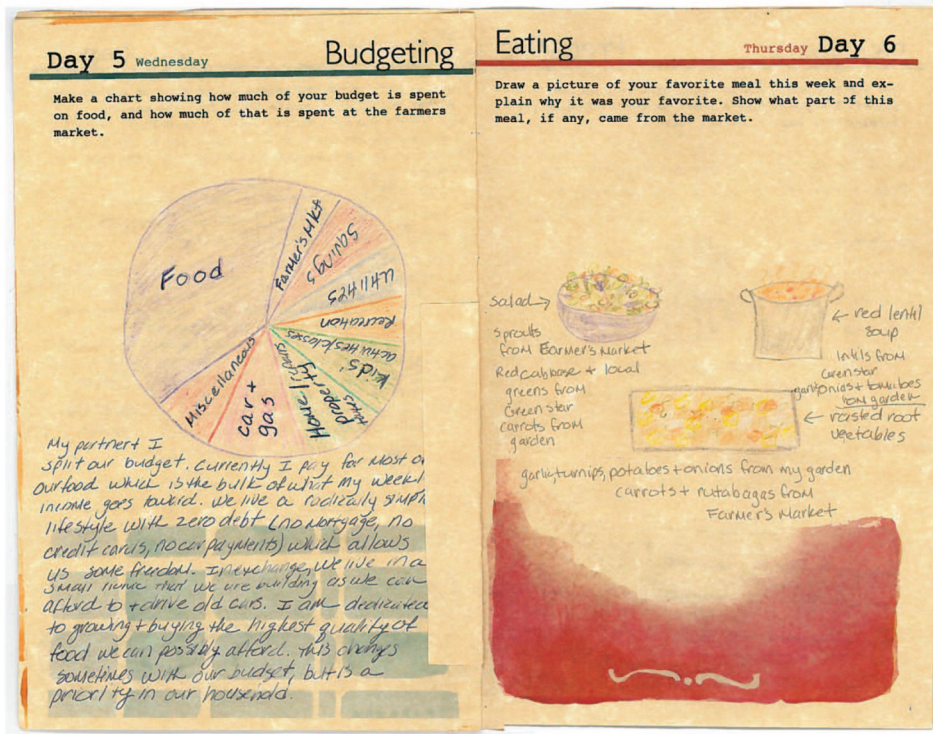 Day 5 Wednesday
Budgeting
Make a chart showing how much of your budget is spent
on food, and how much of that is spent at the farmers
market.
Food
Farmer's Mkt
Savings
Utilites
Recreation
Kid's
activities/closes
property
taxes
Home/repairs
car +
gas
Miscellaneous
My partner + I
split our budget. Currently I pay for most of
our food which is the bulk of what my weekl
income goes toward. We live a radically simple
lifestyle with zero debt (no mortgage, no
credit cards, no car payments) which allows
us some freedom. In exchange, we live in a
small home that we are building as we can
afford to + drive old cars. I am dedicated
to growing + buying the highest quality of
food we can possibly afford. This changes
sometimes with our budget, but is a
priority in our household.
Eating
Thursday Day 6
Draw a picture of your favorite meal this week and ex-
plain why it was your favorite. Show what part of this
meal, if any, came from the market.
salad
sprouts
from Farmer's Market
Red cabbage + local
greens from
Greenstar
carrots from
garden
red lentil
soup
lentils from
Greenstar
onions + tomatoes
from garden
roasted root
vegetables
garlic, turnips, potatoes + onions from my garden
carrots + rutabagas from
Farmer's Market